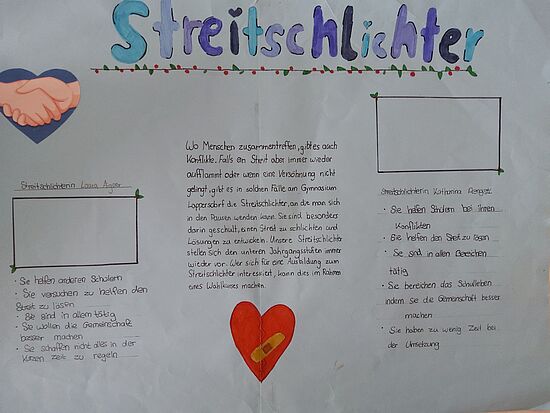 Streitschlichter
Streitschlichterin Laura
Sie helfen anderen Schülern
Sie versuchen zu helfen den
Streit zu lösen
Sie sind in allem tätig
Sie wollen die Gemeinschaft
besser machen
Sie schaffen nicht alles in der
kurzen Zeit zu regeln
Wo Menschen zusammentreffen, gibt es auch
Konflikte. Falls ein Streit aber immer wieder
aufflammt oder wenn eine Versöhnung nicht
gelingt, gibt es in solchen Fälle am Gymnasium
Lappersdorf die Streitschlichter, an die man sich
in den Pausen wenden kann. Sie sind besonders
darin geschult, einen Streit zu schlichten und
Lösungen zu entwickeln. Unsere Streitschlichter
stellen sich den unteren Jahrgangsstufen immer
wieder vor. Wer sich für eine Ausbildung zum
Streitschlichter interessiert, kann dies im Rahmen
eines Wahlkurses machen.
Streitschlichterin Katharina
Sie helfen Schülern bei ihren
Konflikten
Sie helfen den Streit zu lösen
Sie sind in allen Bereichen
tätig
Sie bereichen das Schulleben
indem Sie die Gemeinschaft besser
machen
Sie haben zu wenig Zeit bei
der Umsetzung